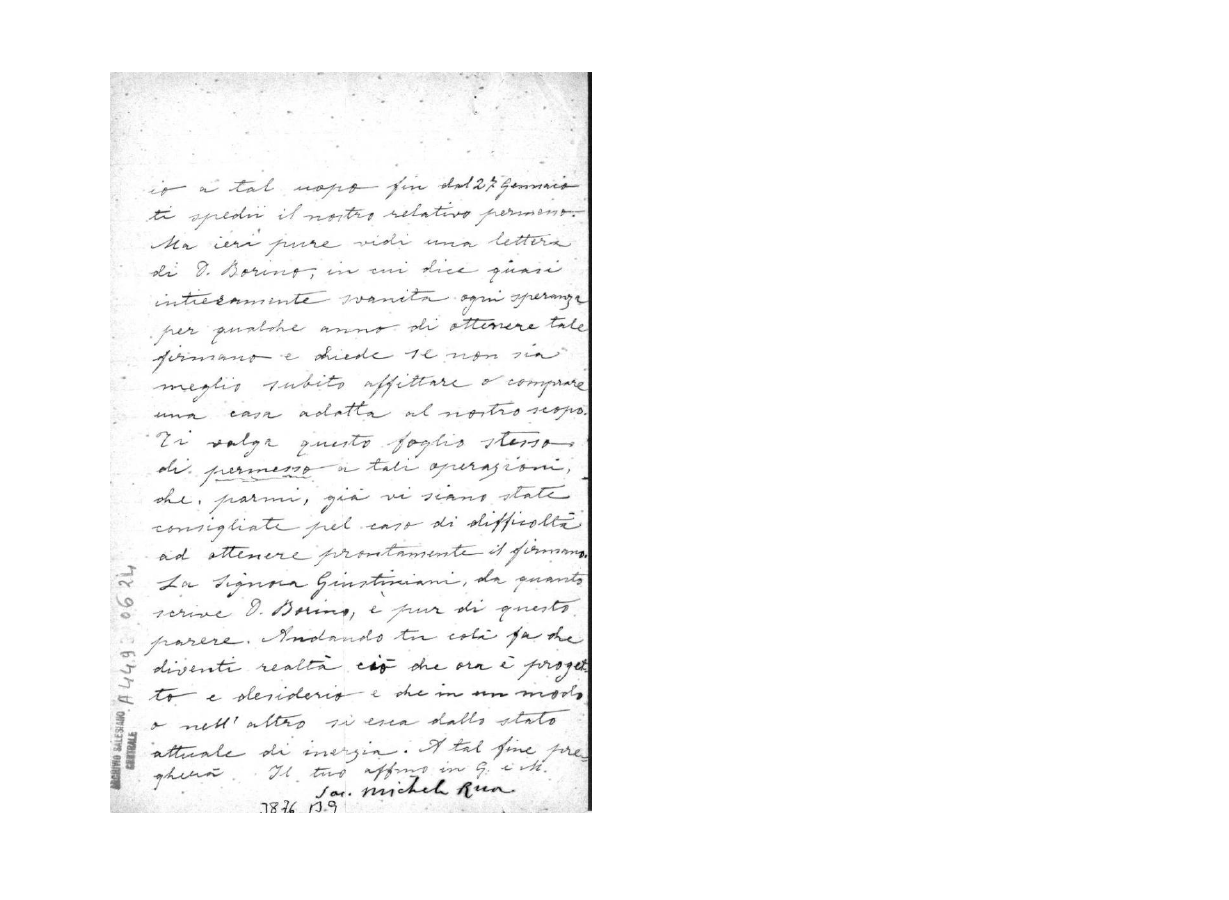 io a tal uopo fin dal 27 Gennaio
ti spedii il nostro relativo permesso.
Ma ieri pure vidi una lettera
di D. Borino, in cui dice quasi
intieramente svanita ogni speranza
per qualche anno di ottenere tale
firmano e chiede se non sia
meglio subito affittare o comprare
una casa adatta al nostro scopo.
Ti valga questo foglio stesso
di permesso a tali operazioni,
che, parmi, già vi siano state
consigliate pel caso di difficoltà
ad ottenere prontamente il firmano.
La Signora Giustiniani, da quanto
scrive D. Borino, è pur di questo
parere. Andando tu colà fa che
diventi realtà ciò che ora è proget-
to e desiderio e che in un modo
o nell' altro si esca dallo stato
attuale di inerzia. A tal fine pre-
gherà Il tuo affmo in G. e M.
Sac. Michele Rua
3876 B9
A 449 06 24
ARCHIVIO SALESIANO
CENTRALE